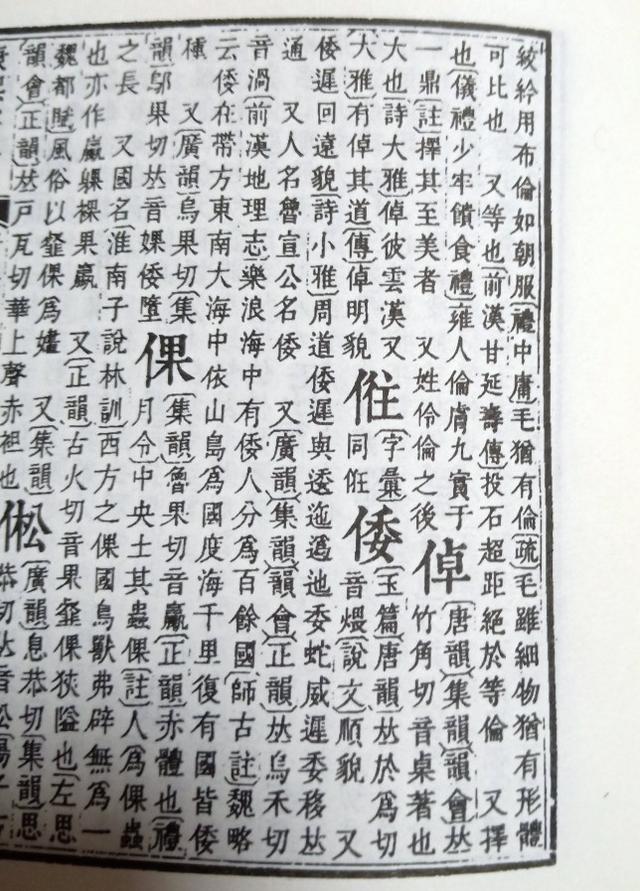 絞紟用布倫如朝服〔禮中庸〕毛猶有倫〔疏〕毛雖細物猶有形體
可比也　又等也〔前漢甘延壽傳〕投石超距絕於等倫　又擇
也〔儀禮少牢饋食禮〕雍人倫膚九實于
一鼎〔註〕擇其至美者　又姓伶倫之後
倬
〔唐韻〕〔集韻〕〔韻會〕𠀤
竹角切音桌著也
大也〔詩大雅〕倬彼雲漢又
大雅有倬其道〔傳〕倬明貌
〔字彙〕
同
倭
〔玉篇〕〔唐韻〕𠀤於爲切
音煨〔說文〕順貌　又
倭遲回遠貌〔詩小雅〕周道倭遲與逶迤迆委蛇威遲委移𠀤
通　又人名魯宣公名倭　又〔廣韻〕〔集韻〕〔韻會〕〔正韻〕𠀤烏禾切
音渦〔前漢地理志〕樂浪海中有倭人分爲百餘國〔師古註〕魏略
云倭在帶方東南大海中依山島爲國度海千里復有國皆倭
種　又〔廣韻〕烏果切〔集
韻〕鄔果切𠀤音婐倭墮
倮
〔集韻〕魯果切音臝〔正韻〕亦體也〔禮
月令〕中央土其蟲倮〔註〕人爲倮蟲
之長　又國名〔淮南子說林訓〕西方之倮國鳥獸弗辟無爲一
也亦作臝躶裸果蠃　又〔正韻〕古火切音果韰倮狹隘也〔左思
魏都賦〕風俗以韰倮爲　又〔集韻〕
〔韻會〕〔正韻〕𠀤戸瓦切華上聲赤袒也
倯
〔廣韻〕息恭切〔集韻〕思
恭切𠀤音松